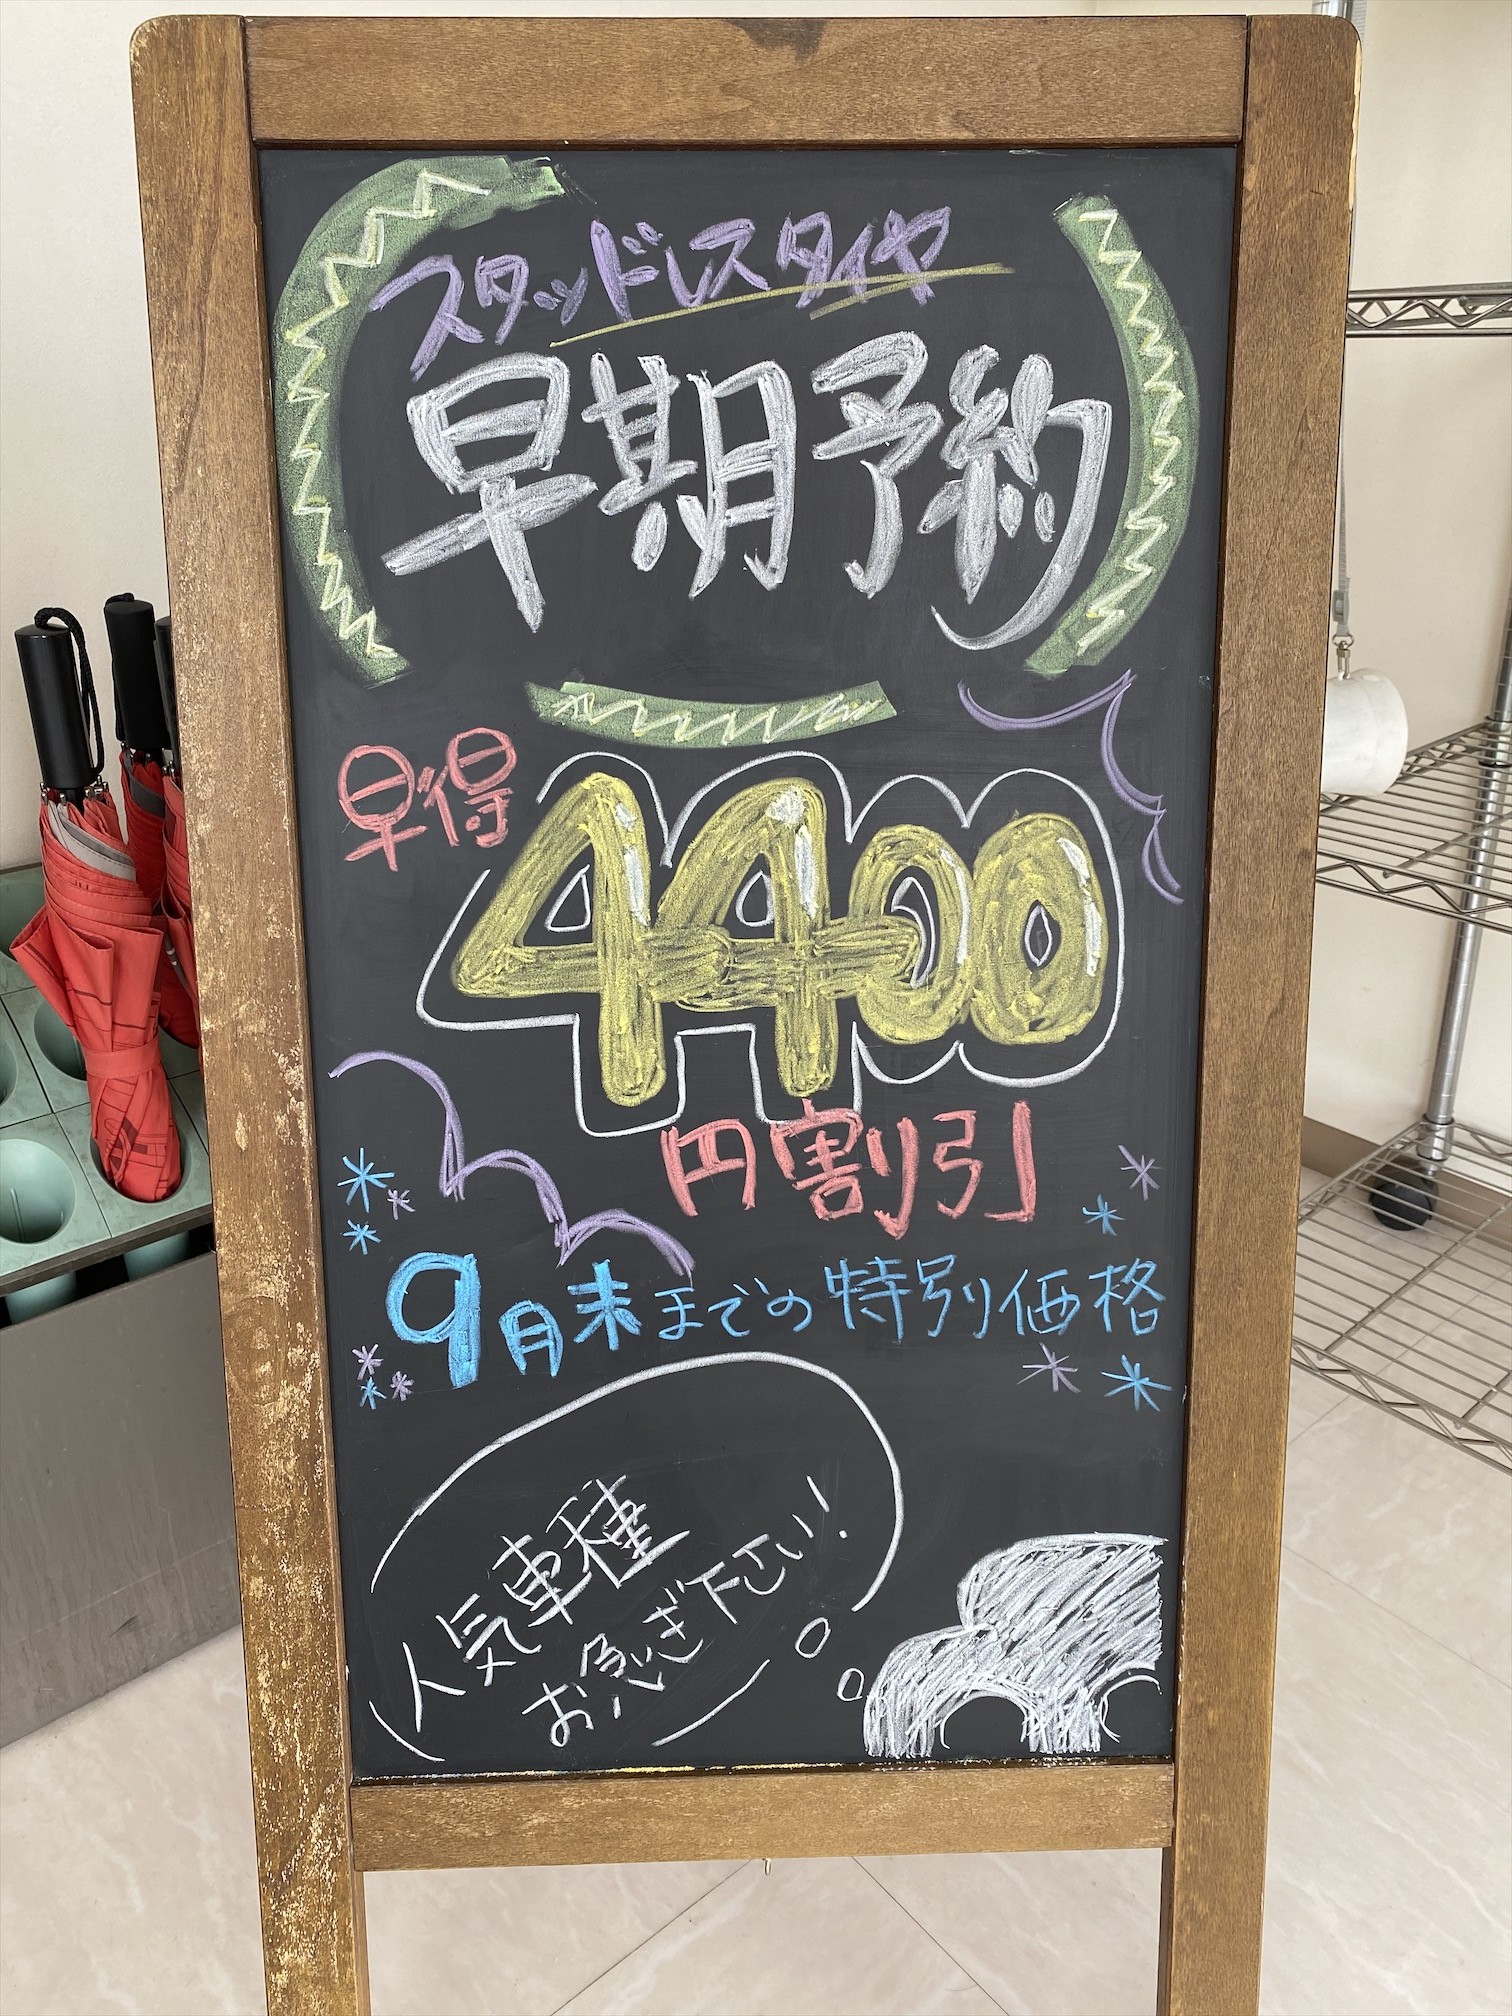 スタッドレスタイヤ
早期予約
早得
4400
円割引
9月末までの特別価格
人気車種
お急ぎ下さい!